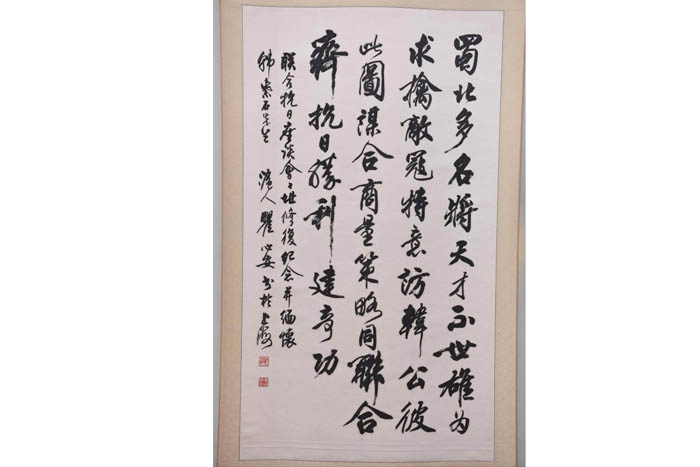 蜀北多名將天才不世雄为
求擒敵寇特意訪韓公彼
此圖謀合商量策略同聯合
齊抗日勝利建奇功
联合抗日座谈會々址修復纪念并缅懷
韩索石先生 滬人瞿心安书於上海